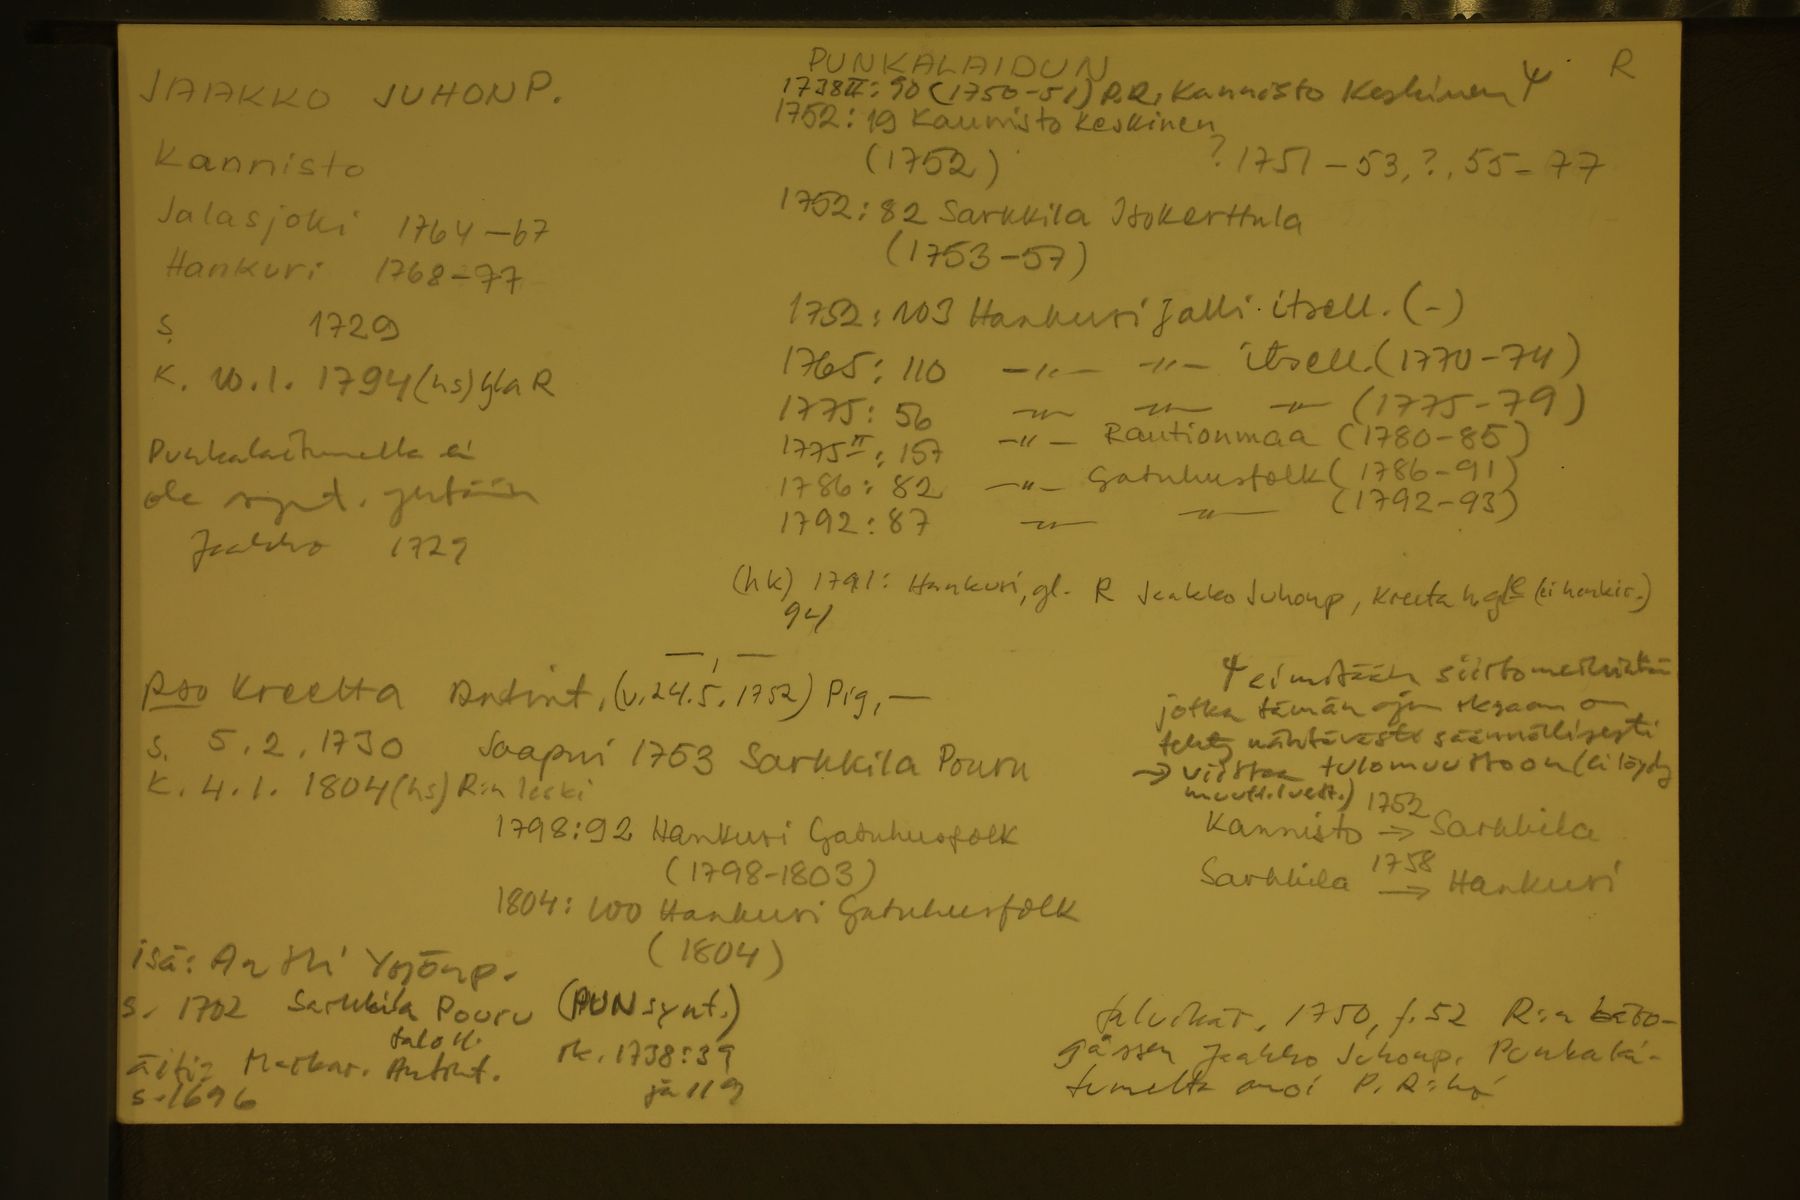 PUNKALAIDUN
R
JAAKKO JUHONP.
1738II: 90 (1750-51) P.R. Kannisto Keskinen Ψ
1752: 19 Kannisto Keskinen
(1752)
? 1751-53, ?, 55-77
Kannisto
Jalasjoki 1764-67
Hankuri 1768-77
s. 1729
k. 10.1. 1794 (hs) gla R
Punkalaitumella ei
ole synt. yhtään
Jaakko 1729
1752: 82 Sarkkila Isokerttula
(1753-57)
1752: 103 Hankuri Jalli itsell. (-)
1765: 110 -"- -"- itsell. (1770-74)
1775: 56 -"- -"- -"- (1775-79)
1775II: 157 -"- Rautionmaa (1780-85)
1786: 82 -"- Gatuhusfolk (1786-91)
1792: 87 -"- -"- (1792-93)
(hk) 1791: Hankuri, gl. R Jaakko Juhonp, Kreeta h. (ei henkir.)
94
—, —
pso Kreetta Antint. (v. 24.5. 1752) Pig, —
s. 5.2. 1730 Saapui 1753 Sarkkila Pouru
k. 4.1. 1804 (hs) R:n leski
1798: 92 Hankuri Gatuhusfolk
(1798-1803)
1804: 100 Hankuri Gatuhusfolk
(1804)
Ψ ei mitään siirtomerkintää
jotka tämän ajan on
tehty nähtävästi säännöllisesti
→ tulomuuttoon (ei löydy
1752
Kannisto → Sarkkila
1758
Sarkkila → Hankuri
isä: Antti Yrjönp.
s. 1702 Sarkkila Pouru (PUN synt.)
taloll.
äiti: Markar. Antint. rk. 1738: 39
s. 1696 ja 119
talvikär. 1750, f. 52 R:n
Jaakko Juhonp. Punkalai-
tumelta P. R:ksi